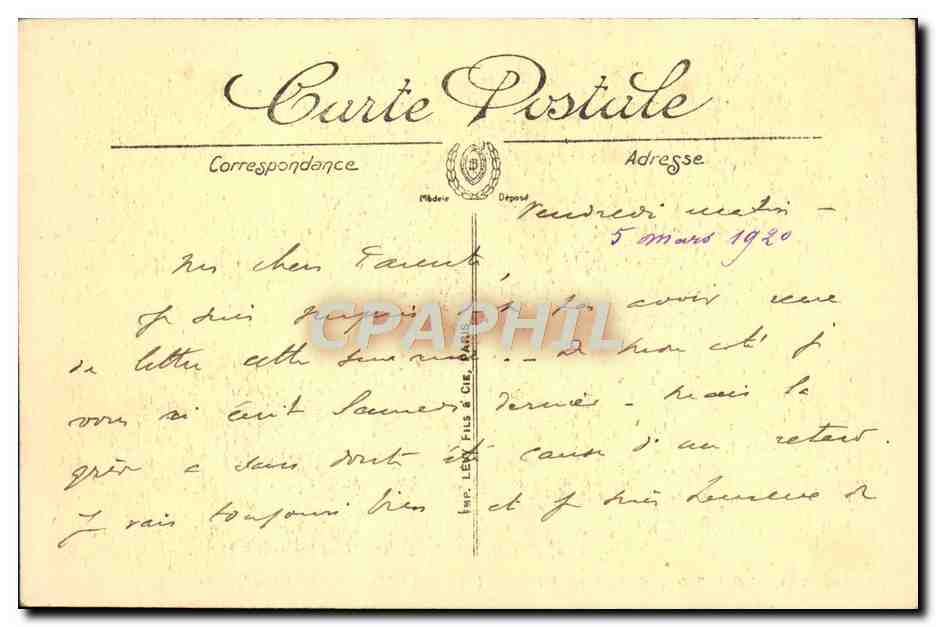 Carte Postale
Correspondance
Adresse
Modèle Déposé
Vendredi matin —
5 mars 1920
Mes chers Parents
Je suis surpris de ne pas avoir reçu
de lettre cette semaine. — De mon côté je
vous ai écrit Samedi dernier — mais la
grève a sans doute été cause d'un retard.
Je vais toujours bien et je suis heureux de
IMP. LÉVY FILS & CIE, PARIS
CPAPHIL